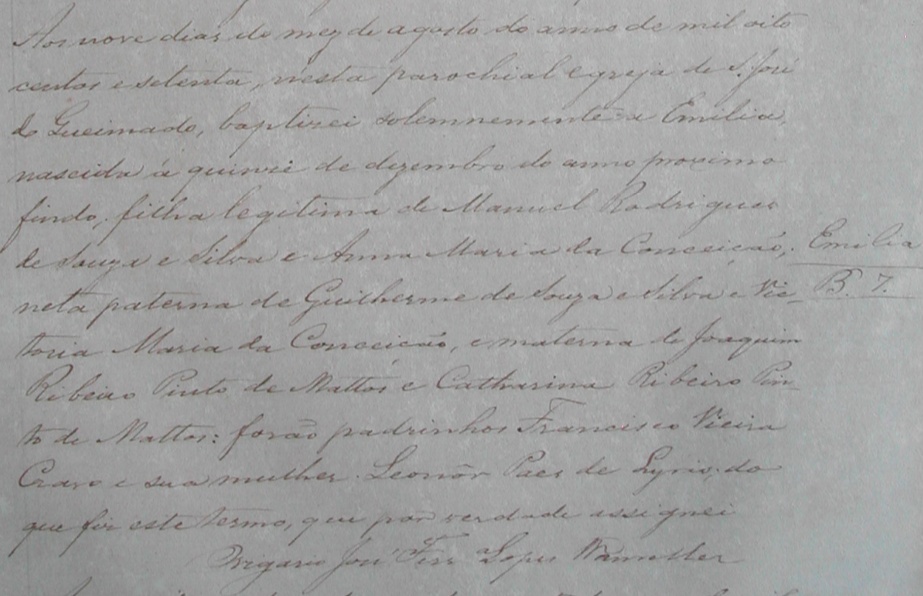 Aos nove dias do mez de agosto do anno de mil oito
centos e setenta, nesta parochial egreja de S. José
do Queimado, baptizei solemnemente a Emilia,
nascida á quinze de dezembro do anno proximo
findo, filha legitima de Manuel Rodrigues
de Souza e Silva e Anna Maria da Conceição,
Emilia
neta paterna de Guilherme de Souza e Silva e Vic-
B. 7.
toria Maria da Conceição, e materna de Joaquim
Ribeiro Pinto de Mattos e Catharina Ribeiro Pin-
to de Mattos: forão padrinhos Francisco Vieira
Cravo e sua mulher Leonôr Paes de Lyrio, do
que fiz este termo, que por verdade assignei
José Lopes